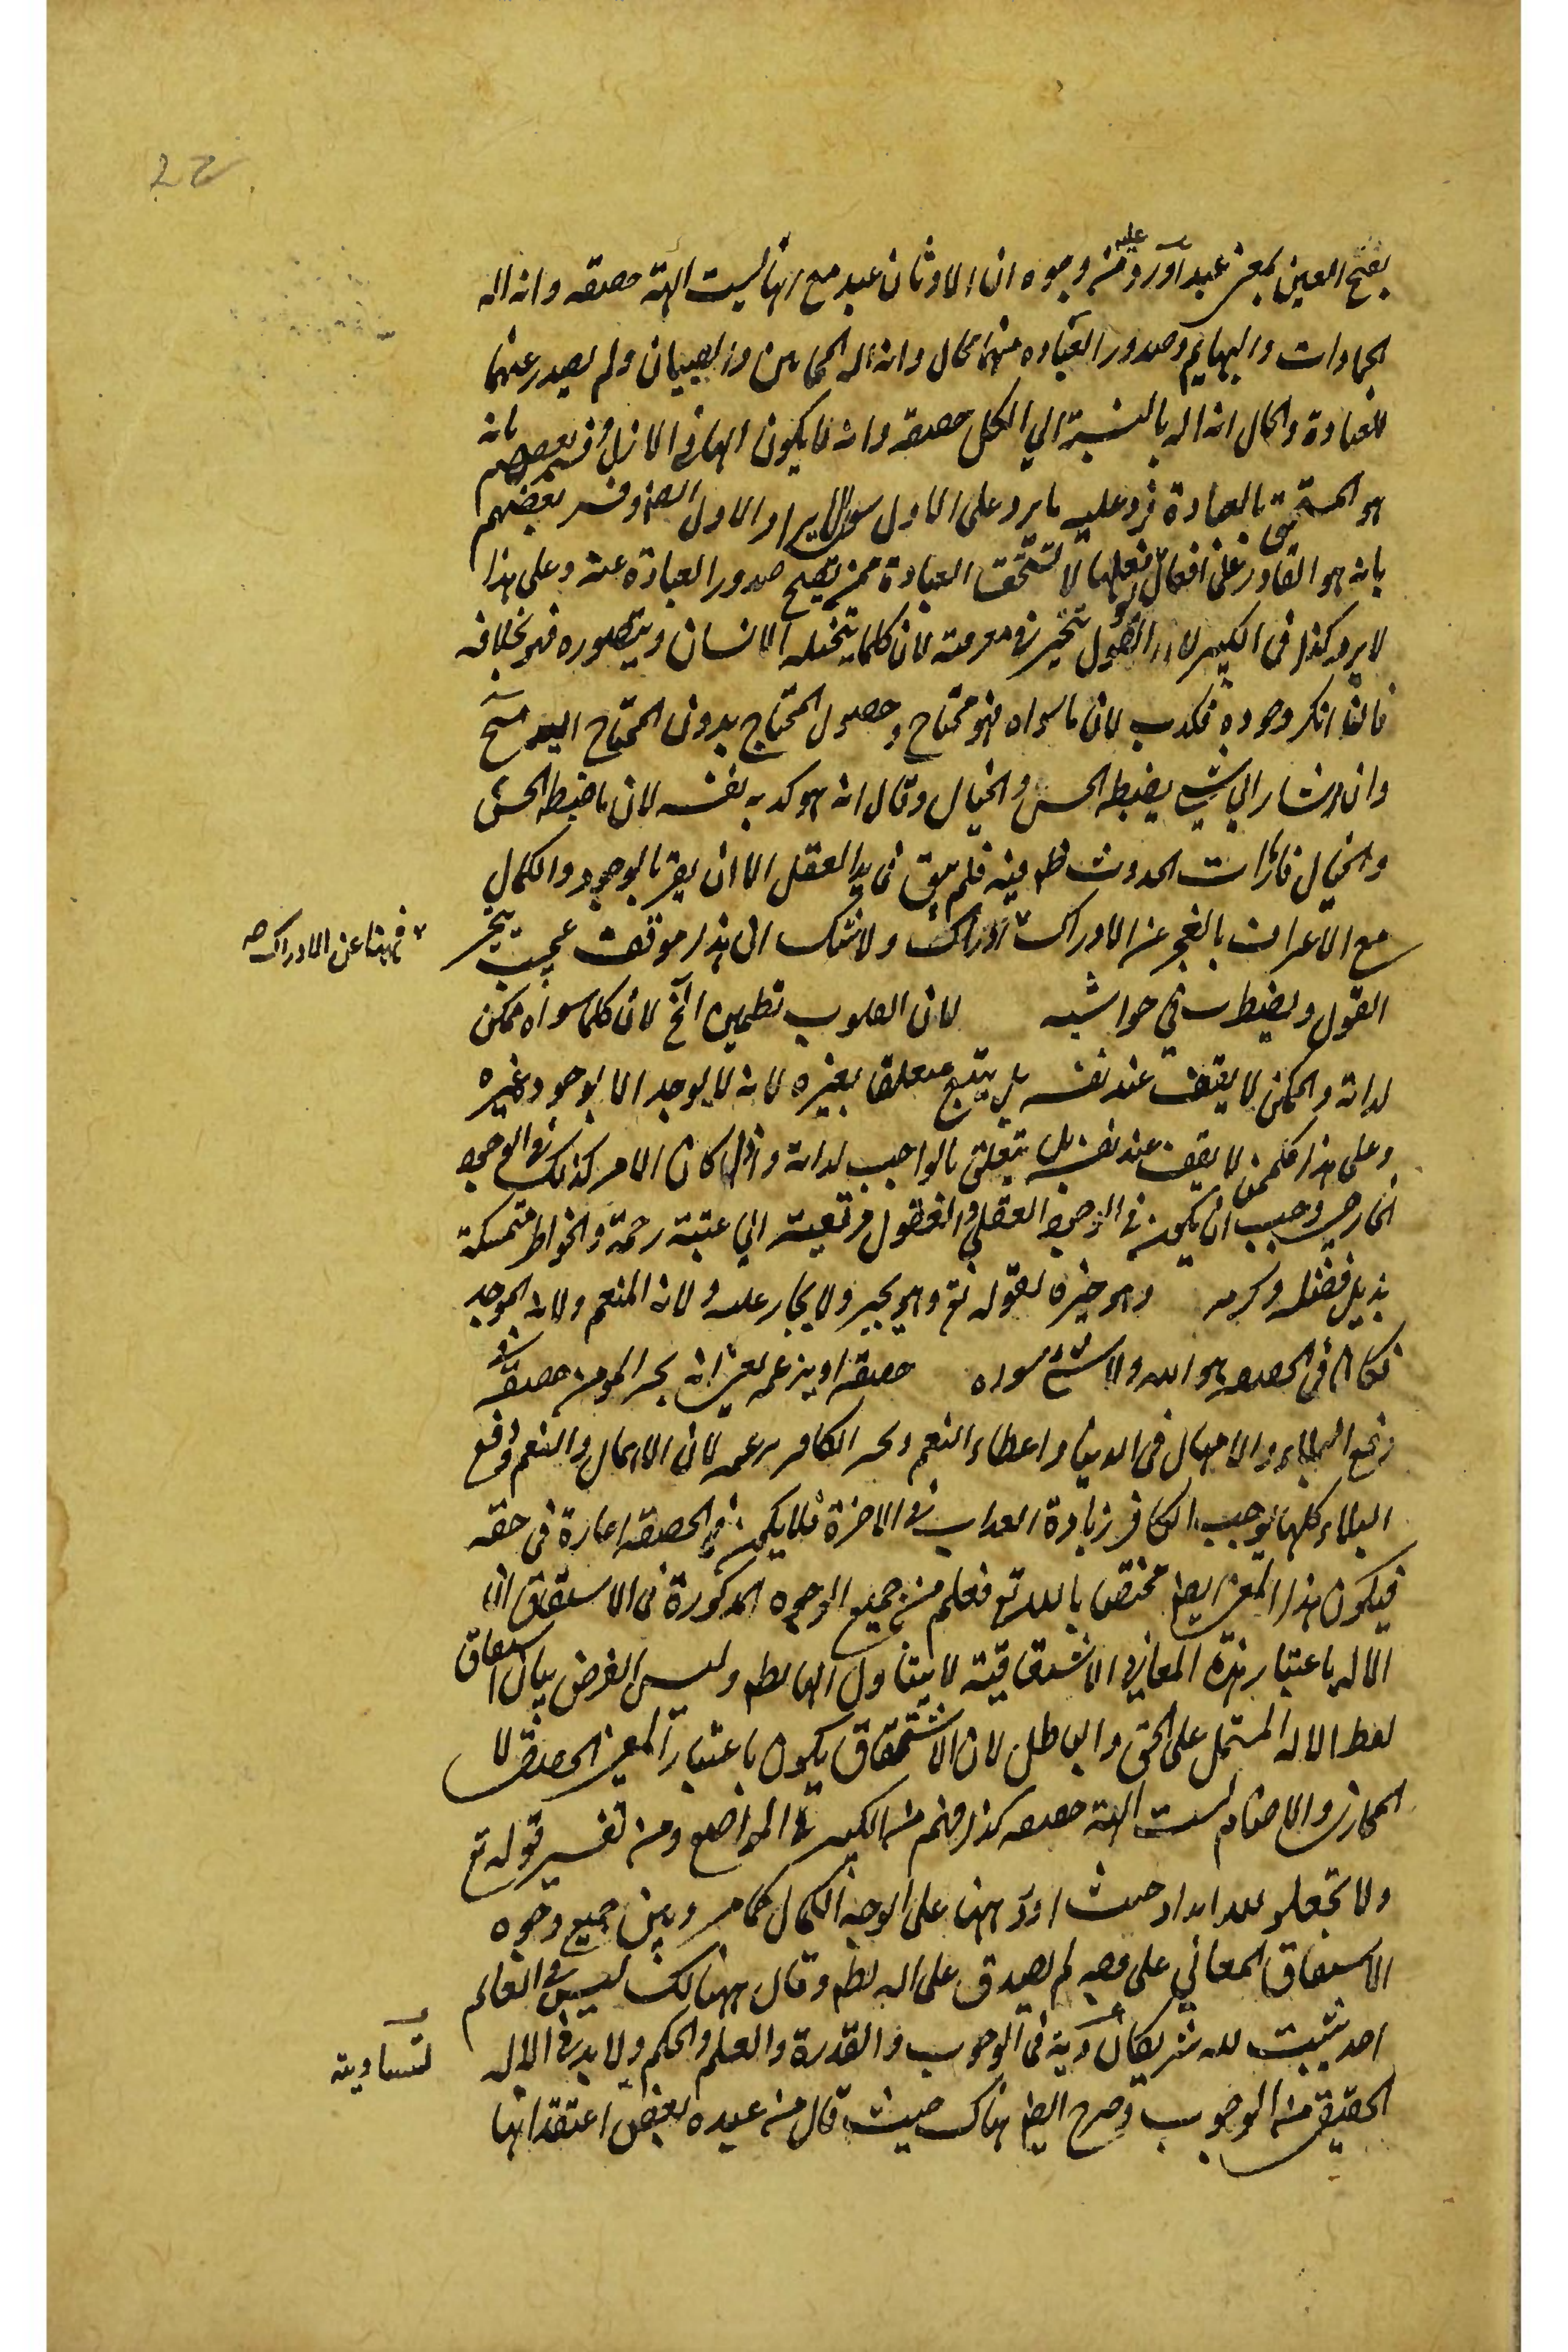 بفتح العين بمعنى عبد اورد عليه من وجوه ان الاوثان عبد مع انها ليست الهة حقيقة وانه اله
الجمادات والبهايم وصدور العباده منهما محال وانه اله المجانين والصبيان ولم يصدر عنهما
العبادة والحال انه اله بالنسبة الي الكل حقيقة وانه لا يكون الها في الازل وفسر بعضهم بانه
هو المستحق بالعبادة فرد عليه ما يرد على الاول سوى الايراد الاول ايضا وفسر بعضهم
بانه هو القادر على افعال لو فعلها لاستحق العبادة ممن يصح صدور العبادة عنه وعلى هذا
لا يرد كذا في الكبير لان العقول تتحير في معرفته لان كلما يتخيله الانسان ويتصوره فهو بخلافه
فان انكر وجوده فكذب لان ما سواه فهو محتاج وحصول المحتاج بدون المحتاج اليه مح
وان اشار الي شيء يضبطه الحس والخيال وقال انه هو كذبه نفسه لان ما ضبطه الحس
والخيال فامارات الحدوث ظ فيه فلم يبق في يد العقل الا ان يقر بالوجود والكمال
مع الاعتراف بالعجز عن الادراك ادراك ولا شك ان هذا موقف عجيب يتحير
فههنا عن الادراك صح
العقول ويضطرب في حواشيه لان القلوب تطمين الخ لان كلما سواه ممكن
لذاته والممكن لا يقف عند نفسه بل يتبع متعلقا بغيره لانه لا يوجد الا بوجود غيره
وعلى هذا فكل ممكن لا يقف عند نفسه بل يتعلق بالواجب لذاته واذا كان الامر كذلك في الوجود
الخارجي وجب ان يكون في الوجود العقلي والعقول مرتقية الي عتبة رحمة والخواطر متمسكة
بذيل فضله وكرمه وهو خيره لقوله تع وهو يجير ولا يجار عليه ولانه المنعم ولانه الموجد
فكان في الحقيقة هو الله ولا شيء سواه حقيقة او بزعمه يعني انه يجير المومن حقيقة في
رفع البلاء والامهال في الدنيا واعطاء النعم ويجير الكافر بزعمه لان الامهال والنعم ورفع
البلاء كلها يوجب الكافر زيادة العذاب في الاخرة فلا يكون في الحقيقة اجارة في حقه
فيكون هذا المعنى ايضا مختصا بالله تع فعلم من جميع الوجوه المذكورة في الاشتقاق ان
الاله باعتبار هذه المعاني الاشتقاقية لا يتناول الباطل وليس الغرض بيان اشتقاق
لفظ الاله المشتمل على الحق والباطل لان الاشتقاق يكون باعتبار المعنى الحقيقي لا
المجازي والاصنام ليست الهة حقيقة كذا فهم من الكبير في المواضع ومن تفسير قوله تع
ولا تجعلو لله اندادا حيث اورد ههنا على الوجه الكمال كما مر وبين جميع وجوه
الاشتقاق المعاني على وجه لم يصدق على اله باطل وقال هنالك ليس في العالم
احد يثبت لله شريكا في الوجوب والقدرة والعلم والحكم ولا بد في الاله
لتساويه
الحقيقي من الوجوب وصرح ايضا هناك حيث قال من عبده بعض اعتقد انها